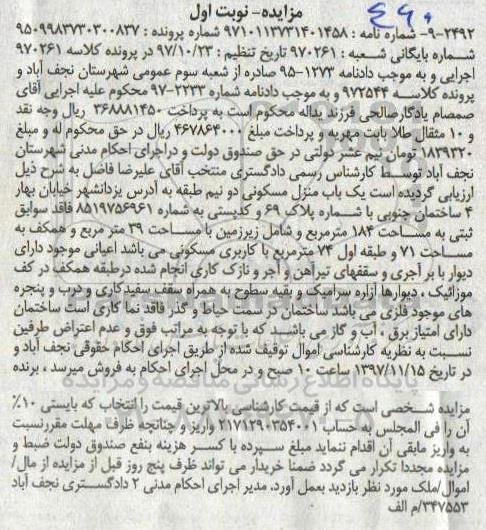 ۴۶۰
مزایده- نوبت اول
۹-۲۴۹۲- شماره نامه : ۹۷۱۰۱۱۳۷۳۱۴۰۱۴۵۸ شماره پرونده : ۹۵۰۹۹۸۳۷۳۰۳۰۰۸۳۷
شماره بایگانی شعبه : ۹۷۰۲۶۱ تاریخ تنظیم : ۹۷/۱۰/۲۳ در پرونده کلاسه ۹۷۰۲۶۱
اجرایی و به موجب دادنامه ۱۲۷۳-۹۵ صادره از شعبه سوم عمومی شهرستان نجف آباد و
پرونده کلاسه ۹۷۲۵۴۴ و به موجب دادنامه شماره ۲۲۳۳-۹۷ محکوم علیه اجرایی آقای
صمصام یادگارصالحی فرزند یداله محکوم است به پرداخت ۳۶۸۸۸۱۴۵۰ ریال وجه نقد
و ۱۰ مثقال طلا بابت مهریه و پرداخت مبلغ ۴۶۷۸۶۴۰۰۰ ریال در حق محکوم له و مبلغ
۱۸۳۹۳۲۰ تومان نیم عشر دولتی در حق صندوق دولت و دراجرای احکام مدنی شهرستان
نجف آباد توسط کارشناس رسمی دادگستری منتخب آقای علیرضا فاضل به شرح ذیل
ارزیابی گردیده است یک باب منزل مسکونی دو نیم طبقه به آدرس یزدانشهر خیابان بهار
۴ ساختمان جنوبی با شماره پلاک ۶۹ و کدپستی به شماره ۸۵۱۹۷۵۶۹۶۱ فاقد سوابق
ثبتی به مساحت ۱۸۴ مترمربع و شامل زیرزمین با مساحت ۳۹ متر مربع و همکف به
مساحت ۷۱ و طبقه اول ۷۴ مترمربع با کاربری مسکونی می باشد اعیانی موجود دارای
دیوار با بر آجری و سقفهای تیرآهن و آجر و نازک کاری انجام شده درطبقه همکف در کف
موزائیک ، دیوارها ازاره سرامیک و بقیه سطوح به همراه سقف سفیدکاری و درب و پنجره
های موجود فلزی می باشد ساختمان در سمت حیاط و گذر فاقد نما کاری است ساختمان
دارای امتیاز برق ، آب و گاز می باشد که با توجه به مراتب فوق و عدم اعتراض طرفین
نسبت به نظریه کارشناسی اموال توقیف شده از طریق اجرای احکام حقوقی نجف آباد و
در تاریخ ۱۳۹۷/۱۱/۱۵ ساعت ۱۰ صبح و در محل اجرای احکام به فروش میرسد ، برنده
پایگاه اطلاع رسانی مناقصه و مزایده
مزایده شخصی است که از قیمت کارشناسی بالاترین قیمت را انتخاب که بایستی ۱۰٪
آن را فی المجلس به حساب ۲۱۷۱۲۹۰۳۵۴۰۰۱ واریز و چنانچه ظرف مهلت مقررنسبت
به واریز مابقی آن اقدام ننماید مبلغ سپرده با کسر هزینه بنفع صندوق دولت ضبط و
مزایده مجددا تکرار می گردد ضمنا خریدار می تواند ظرف پنج روز قبل از مزایده از مال/
اموال/ملک مورد نظر بازدید بعمل آورد. مدیر اجرای احکام مدنی ۲ دادگستری نجف آباد
۳۴۷۵۵۳/م الف